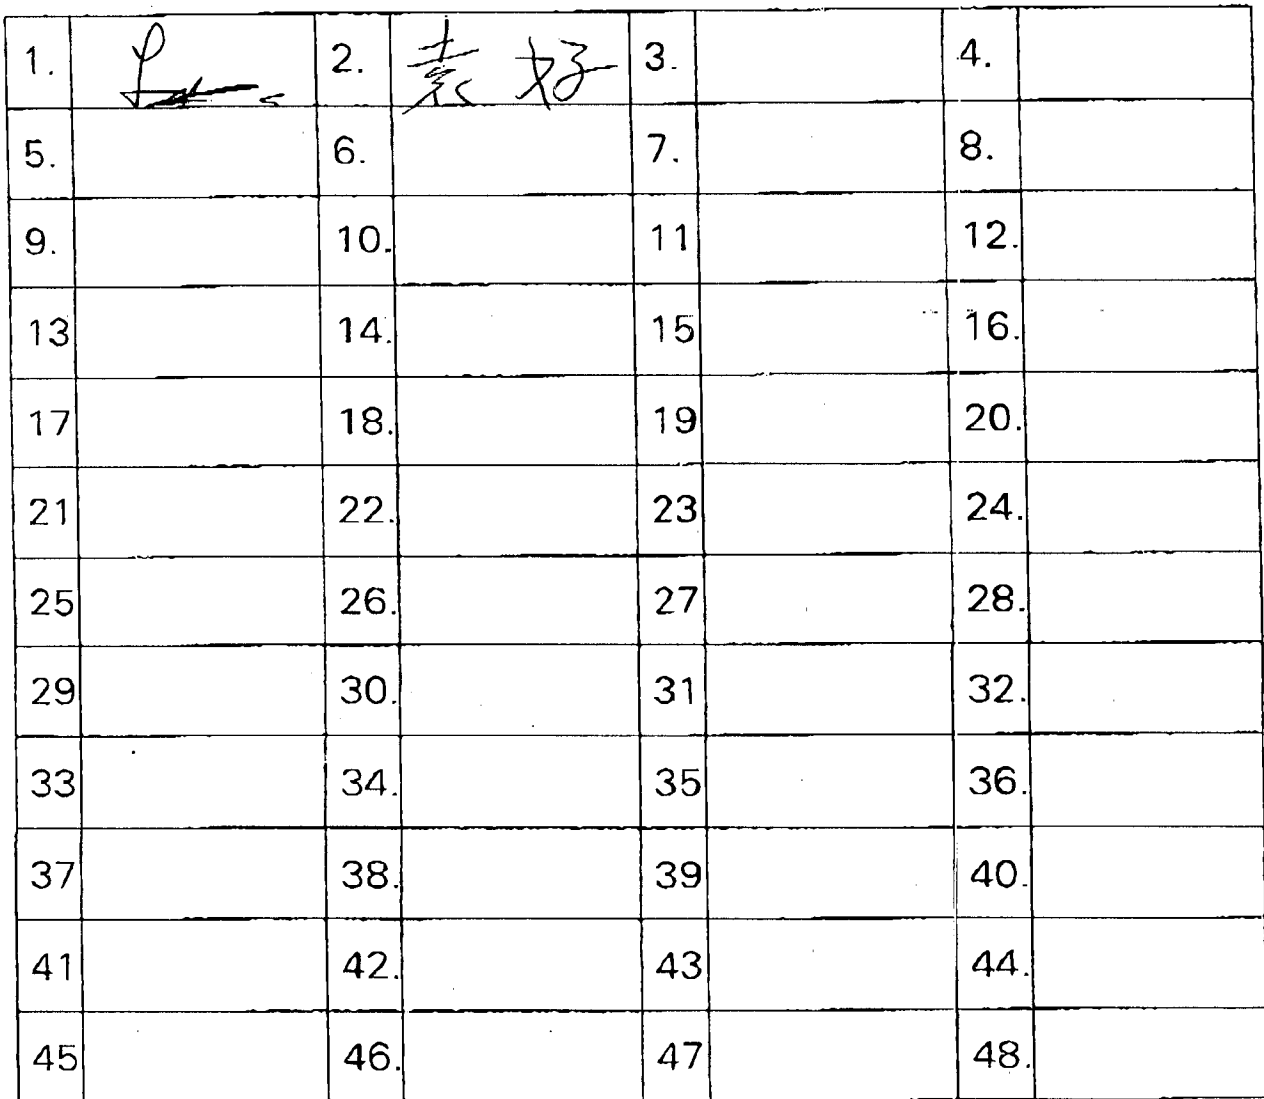 1. 2. 袁好 3. 4.
5. 6. 7. 8.
9. 10. 11 12.
13 14. 15 16.
17 18. 19 20.
21 22. 23 24.
25 26. 27 28.
29 30. 31 32.
33 34. 35 36.
37 38. 39 40.
41 42. 43 44.
45 46. 47 48.